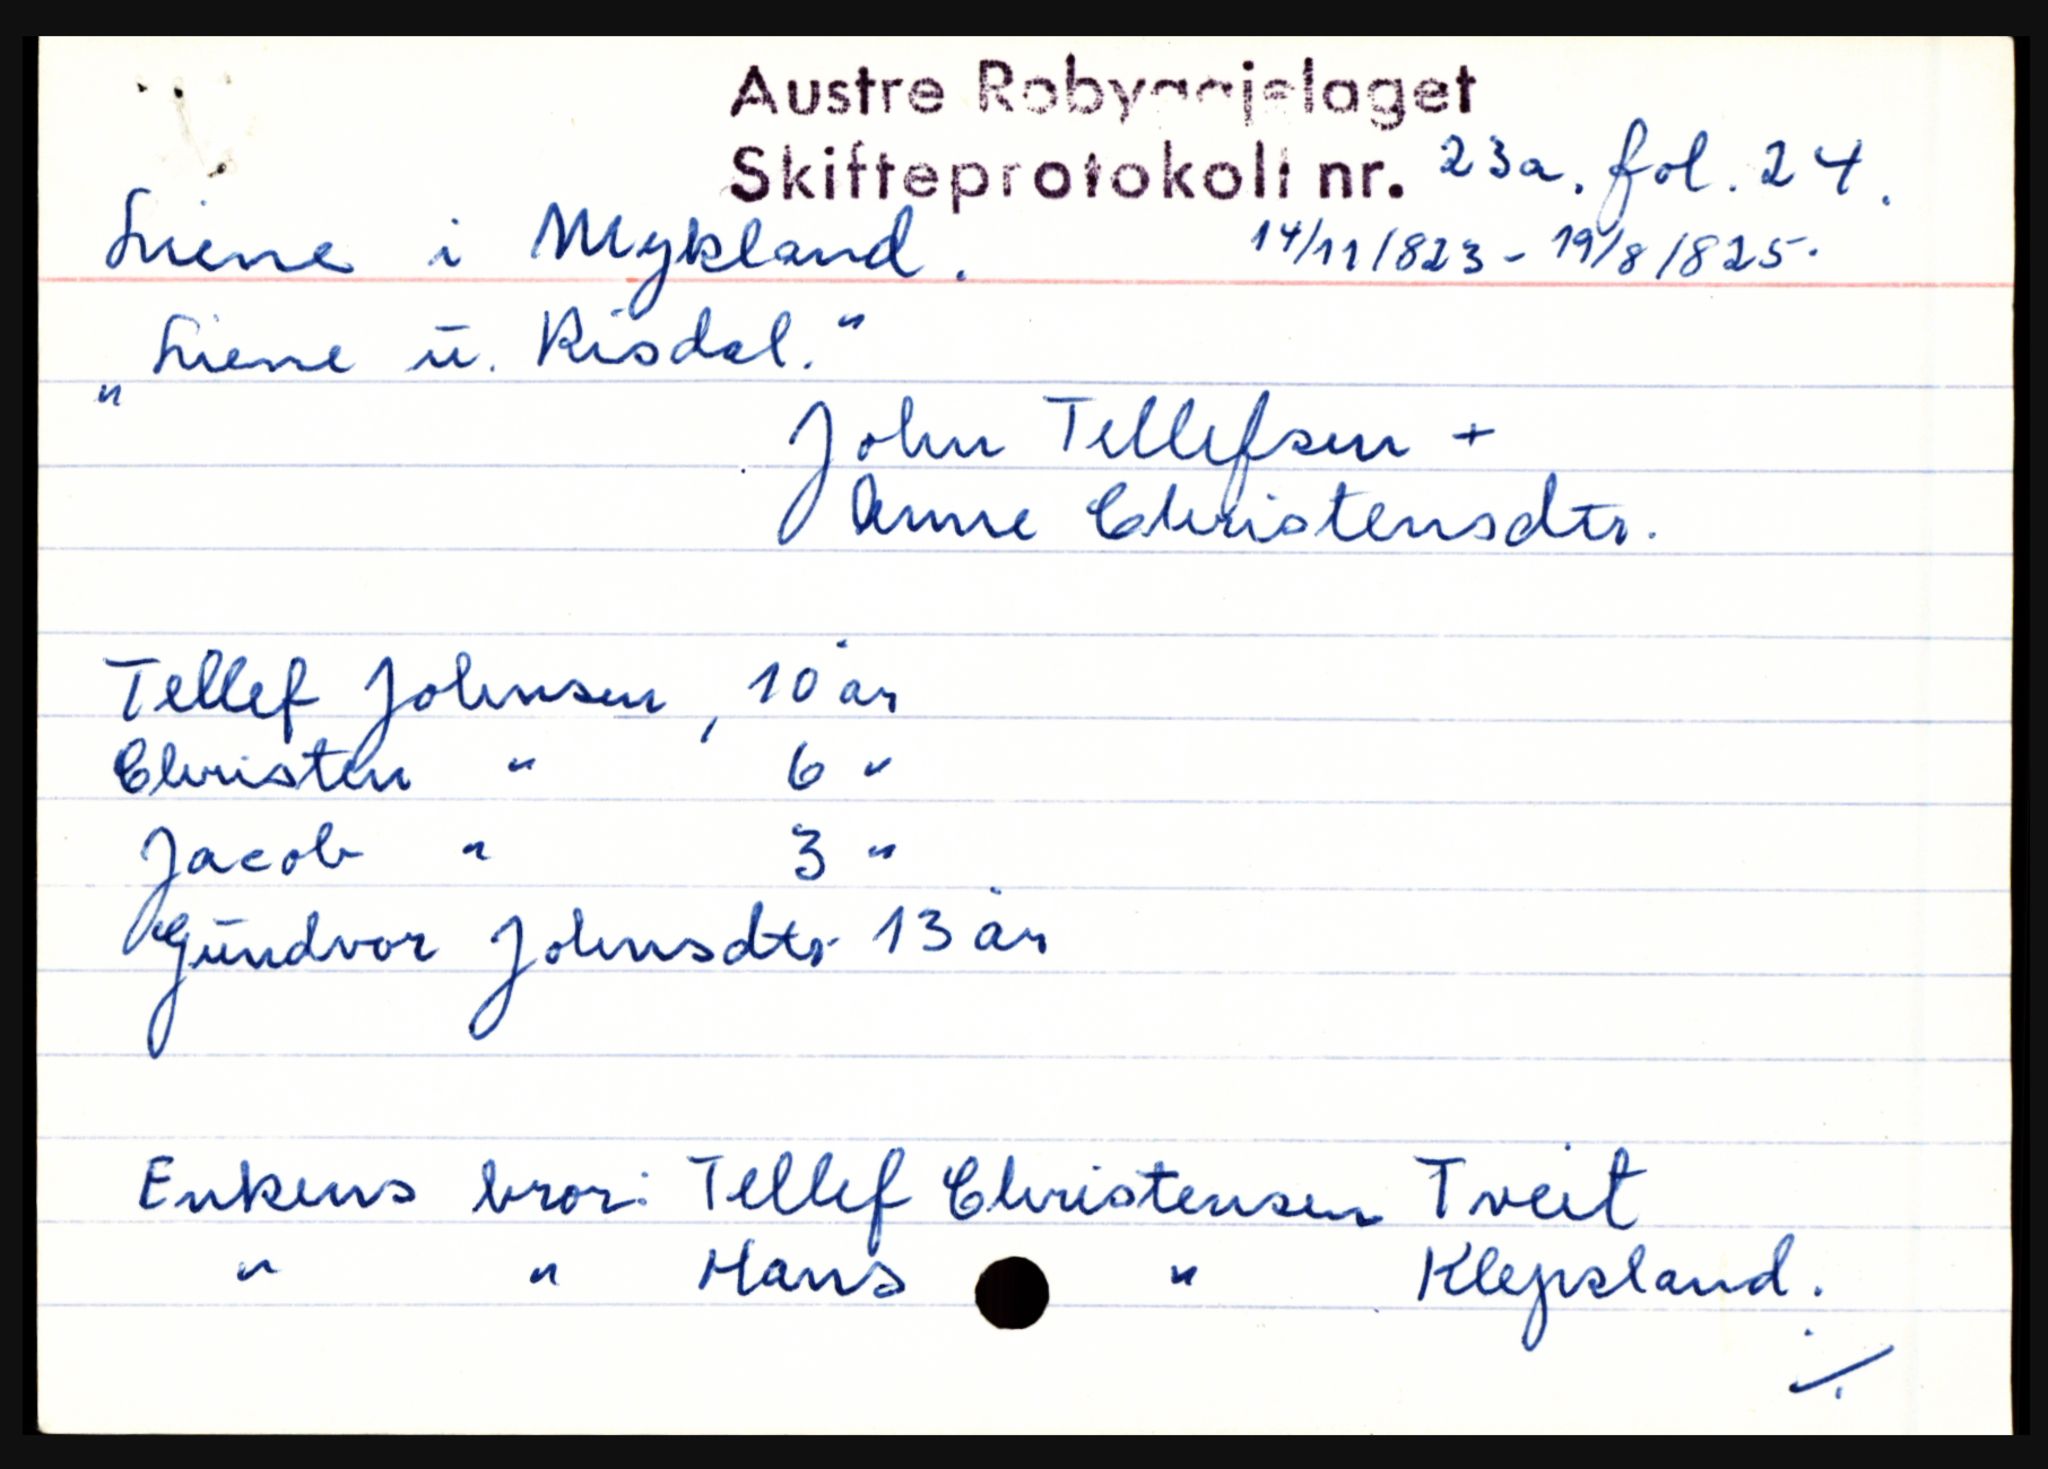 Austre Robyggjelaget
Skifteprotokoll nr. 23a. fol. 24.
Liene i Mykland. 14/11 1823 - 19/8 1825.
"Liene u. Risdal."
John Tellefsen +
Anne Christensdtr.
Tellef Johnsen, 10 år
Christen " 6 "
Jacob " 3 "
Gundvor Johnsdtr 13 år
Enkens bror: Tellef Christensen Tveit
" " Hans " Klepsland.